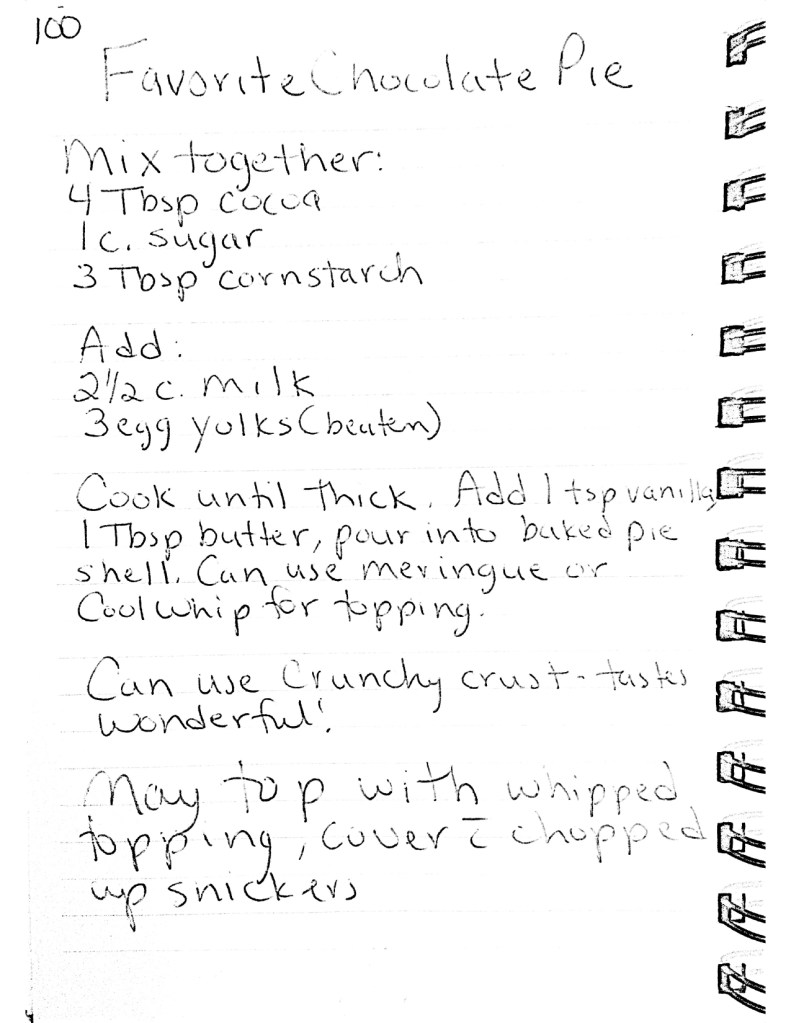 100
Favorite Chocolate Pie
Mix together:
4 Tbsp cocoa
1 c. sugar
3 Tbsp cornstarch
Add:
2 1/2 c. milk
3 egg yolks (beaten)
Cook until thick. Add 1 tsp vanilla
1 Tbsp butter, pour into baked pie
shell. Can use meringue or
Cool Whip for topping.
Can use Crunchy crust - tastes
wonderful!
May top with whipped
topping, cover c̄ chopped
up snickers